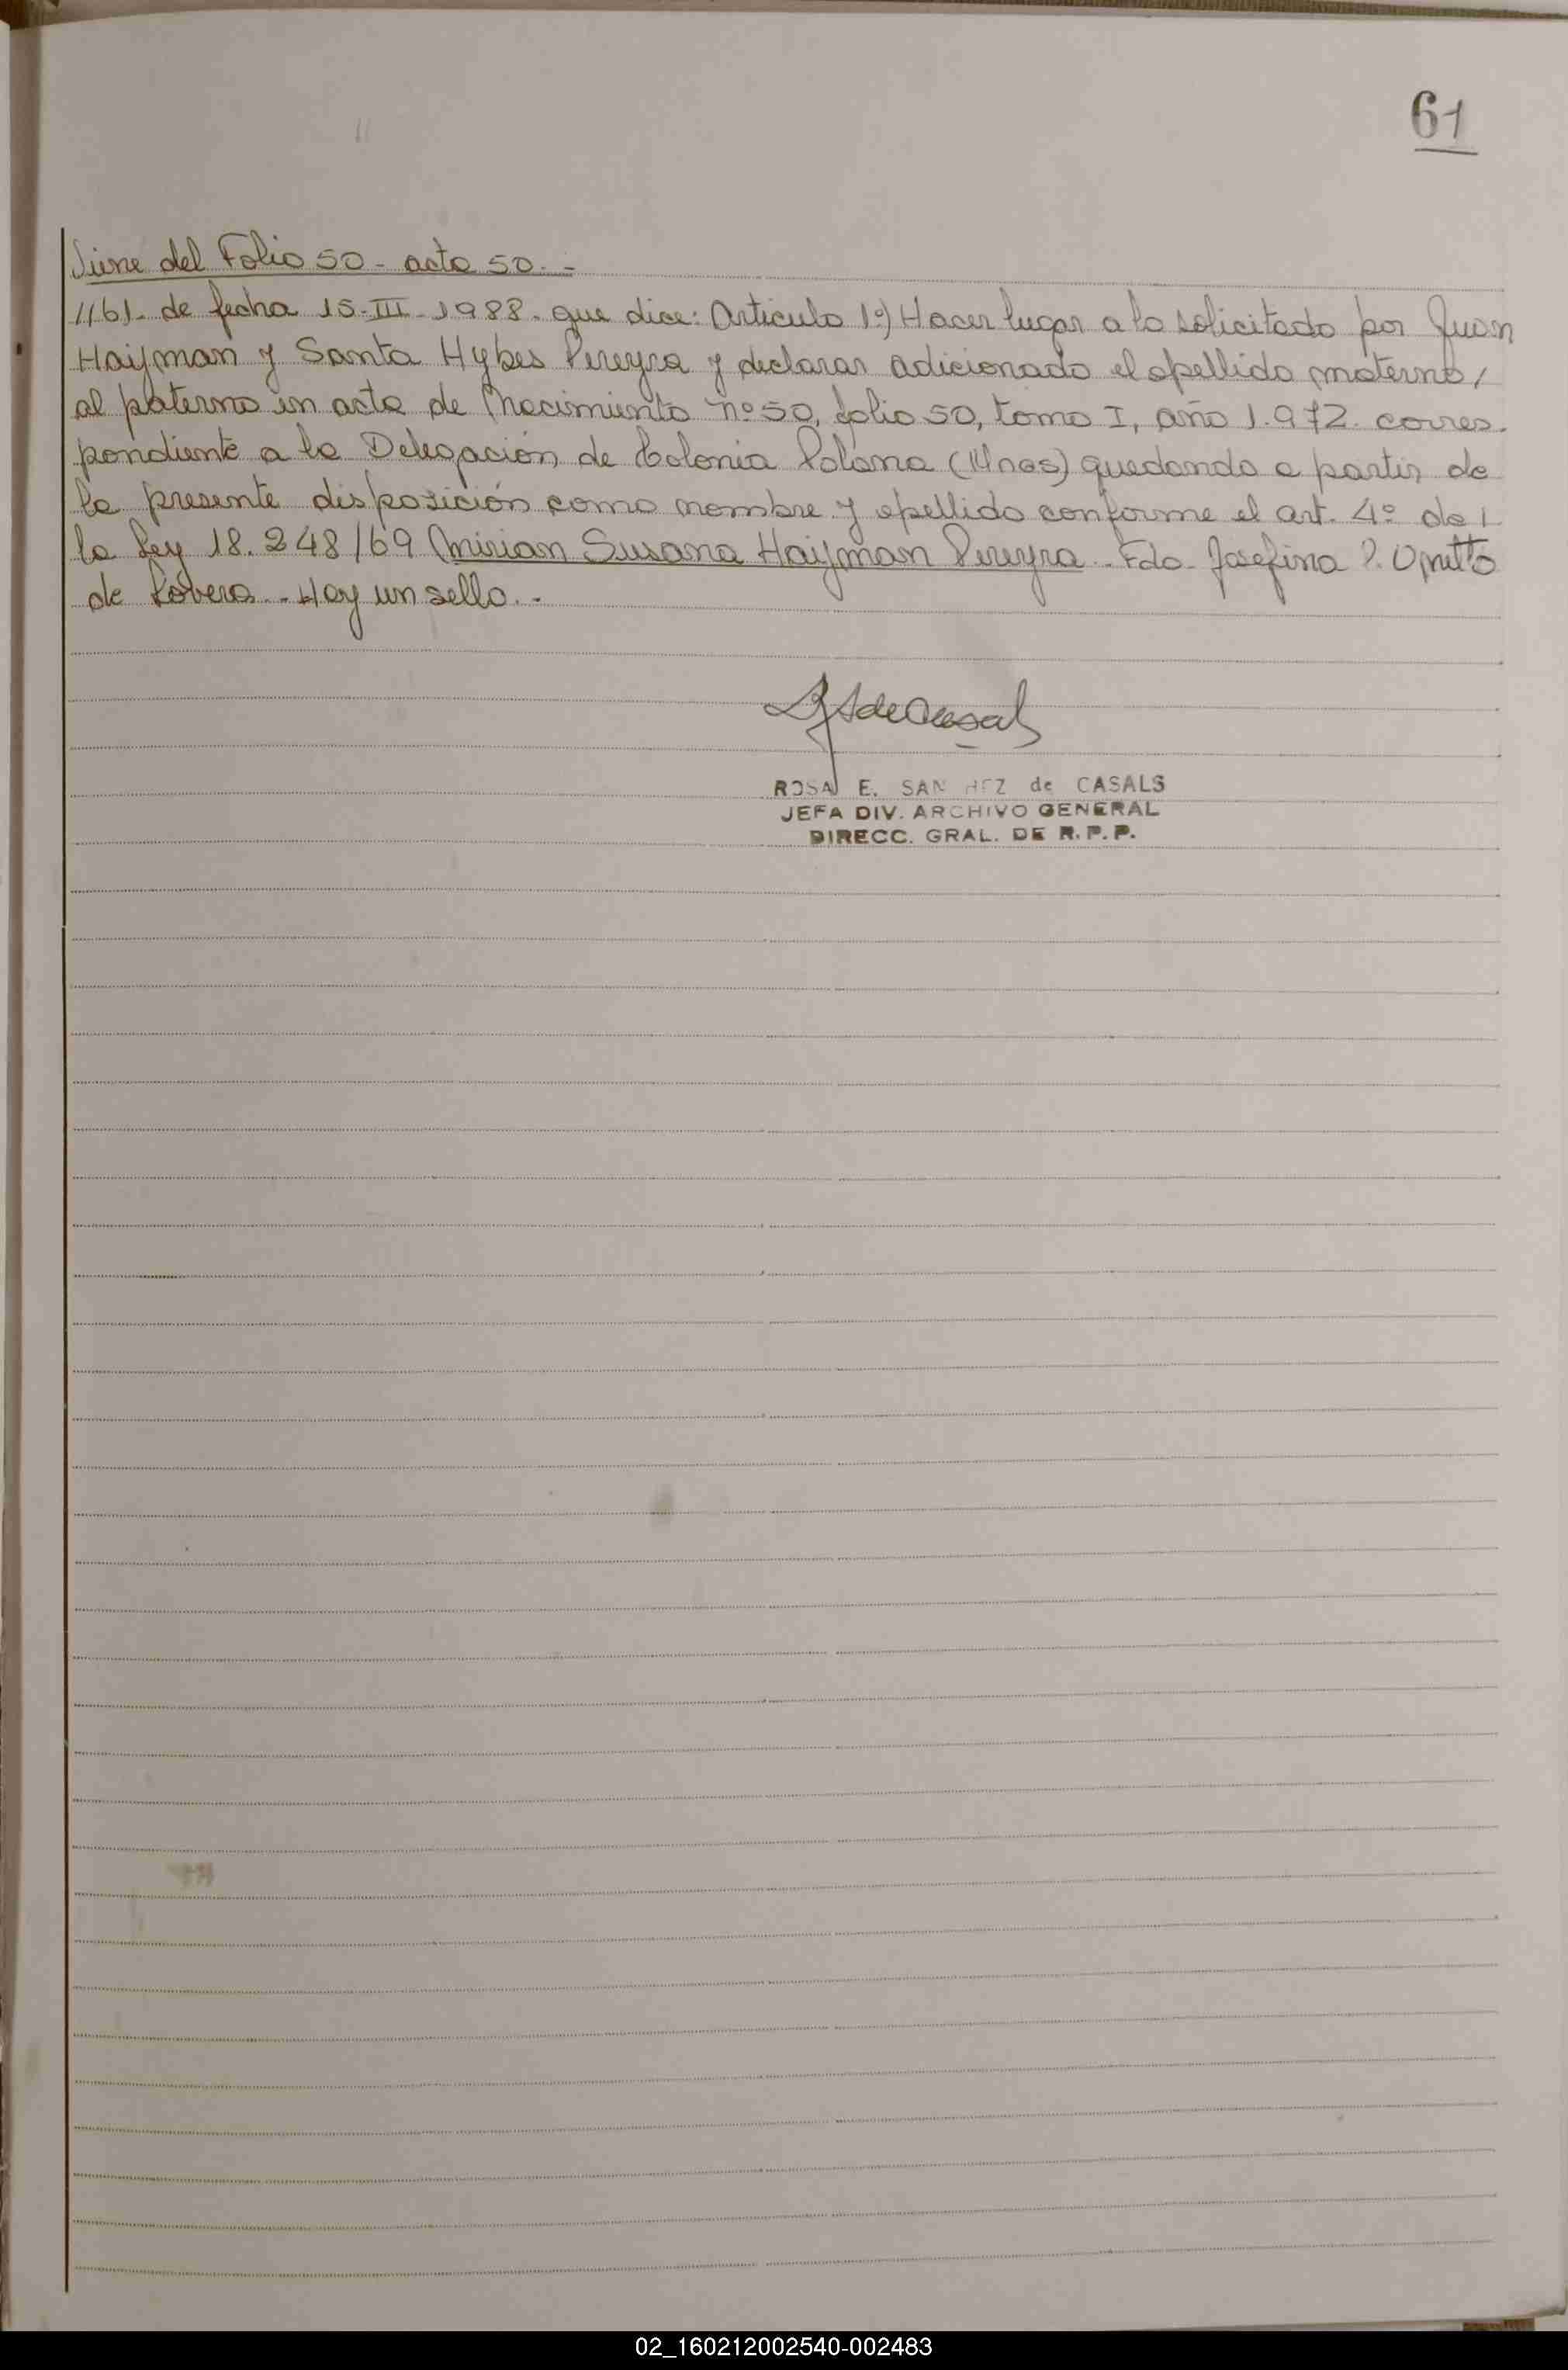 61
Viene del Folio 50 - acta 50.-
1161- de fecha 15-III-1988. que dice: Articulo 1º) Hacer lugar a lo solicitado por Juan
Haijman y Santa Hybes Pereyra y declarar adicionado el apellido materno/
al paterno en acta de Nacimiento nº 50, folio 50, tomo I, año 1.972. corres-
pondiente a la Delegación de Colonia Polana (Mnes) quedando a partir de
la presente disposición como nombre y apellido conforme el art. 4º de /
la Ley 18.248/69 Mirian Susana Haijman Pereyra.- Fdo. Josefina P. Onetto
de Lovera.- Hay un sello.-
ROSA E. SAN HEZ de CASALS
JEFA DIV. ARCHIVO GENERAL
DIRECC. GRAL. DE R.P.P.
02_160212002540-002483